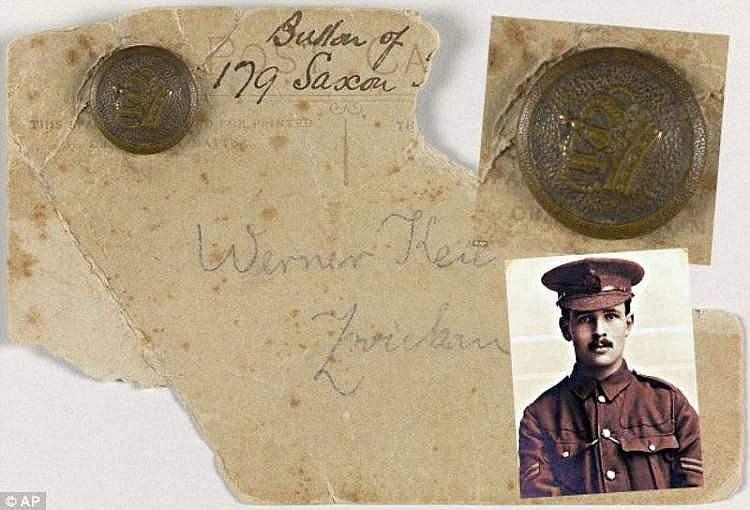 Button of
179 Saxon
POST CA
THIS FOR PRINTED TH
Werner Keil
Zwickau
© AP